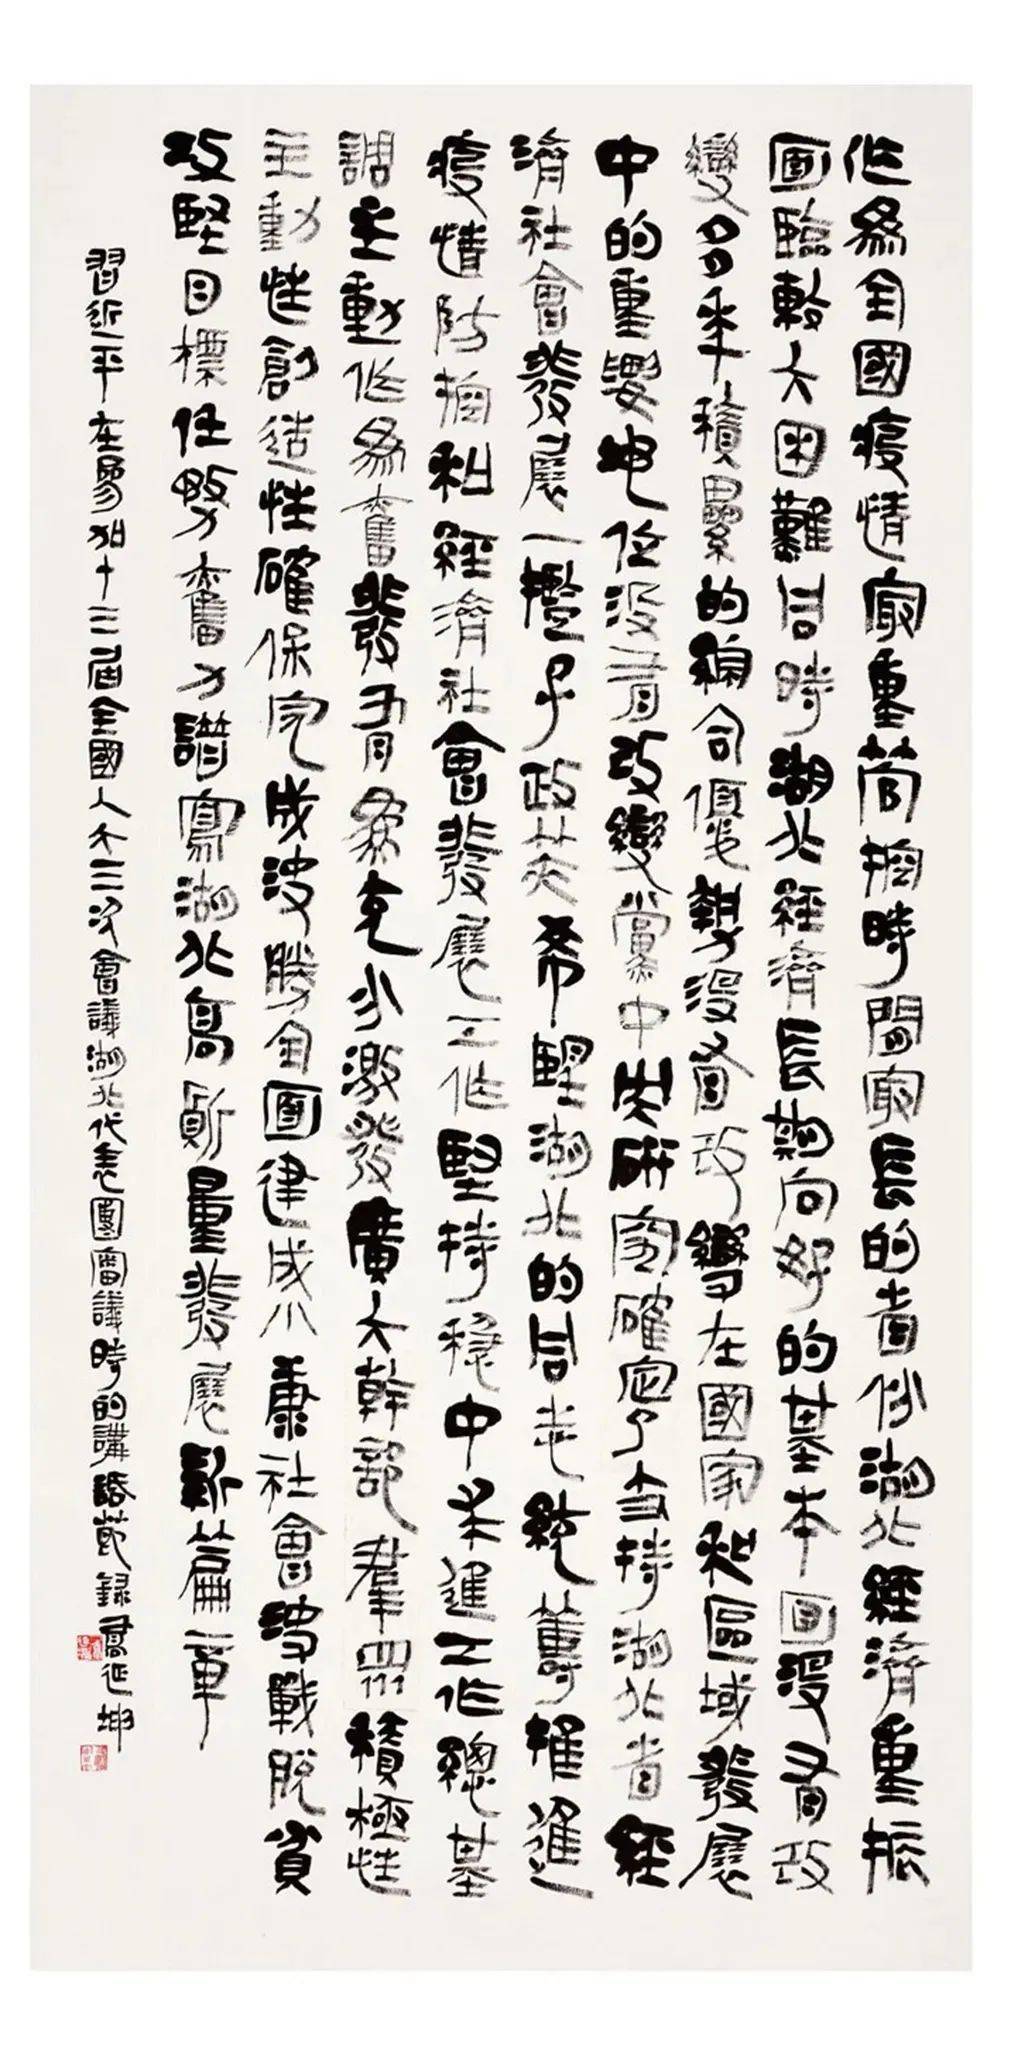 作為全國疫情最重管控時間最長的省份湖北經濟重振
面臨較大困難同時湖北經濟長期向好的基本面沒有改
變多年積累的綜合優勢沒有改變在國家和區域發展
中的重要地位沒有改變黨中央研究確定支持湖北省經
濟社會發展一攬子政策希望湖北的同志統籌推進
疫情防控和經濟社會發展工作堅持穩中求進工作總基
調主動作為奮發有為充分激發廣大幹部群眾積極性
主動性創造性確保完成決勝全面建成小康社會決戰脫貧
攻堅目標任務奮力譜寫湖北高質量發展新篇章
習近平在參加十三屆全國人大三次會議湖北代表團審議時的講話節錄 高延坤